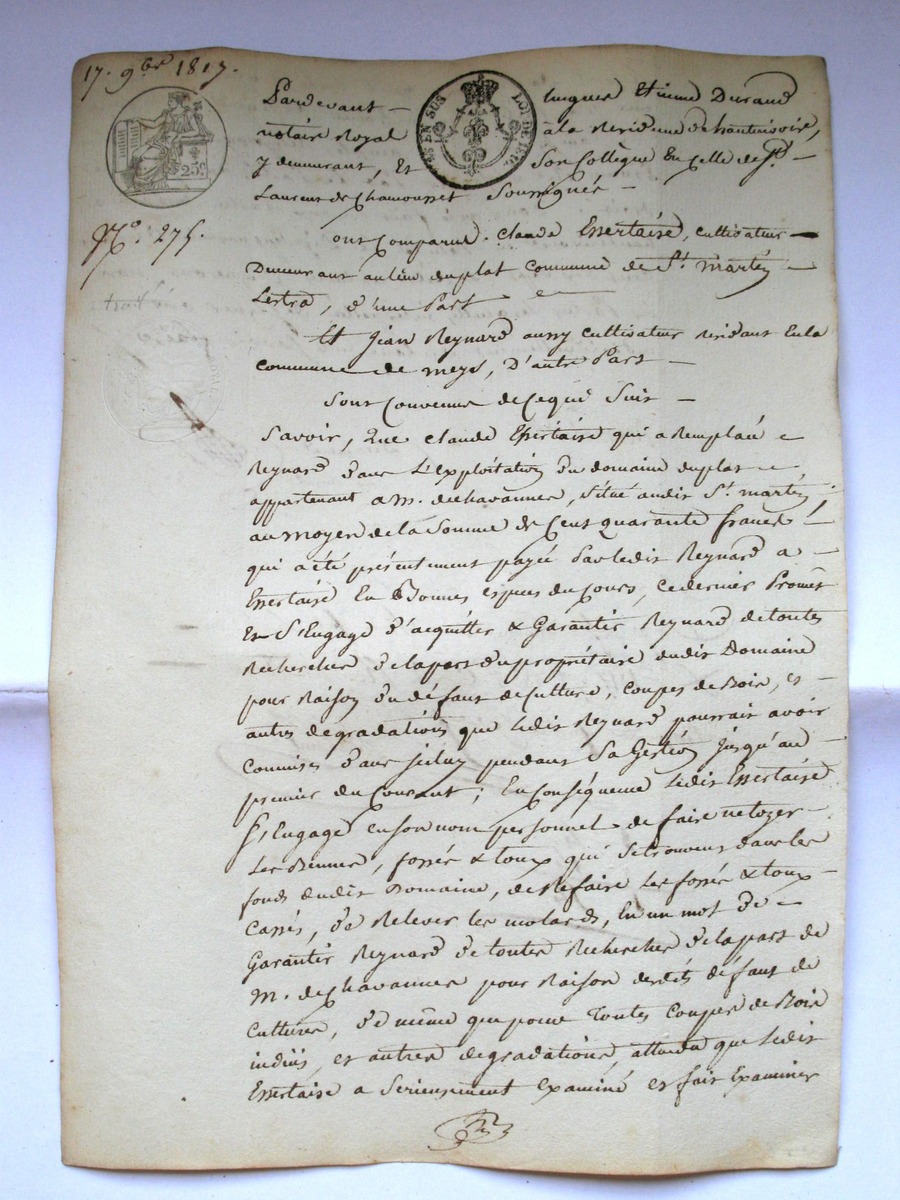 17. 9bre 1817.
Pardevant hugues Etienne Durand
notaire Royal à la Residence de hauterivoire,
y demeurant, Et Son Collègue En celle de St
EN SUS LOI DE
25c
Laurent de Chamousset Soussignés
No. 275.
ont Comparu Claude Essertaise, cultivateur
Demeurant au lieu duplat Commune de St. martin
Lestra, d'une Part
Et Jean Reynard aussy cultivateur residant En la
Commune de meys, D'autre Part
Sont Convenus de Ce qui Suit
Savoir, Que Claude Essertaise qui a Remplacé
Reynard dans L'Exploitation du domaine duplat
appartenant a M. de chavannes, situé audit St. martin,
au moyen de la Somme de Cent quarante francs
qui a été présentement payée Par ledit Reynard a
Essertaise En Bonnes espèces du Cours, ce dernier Promet
Et S'Engage d'acquitter & Garantir Reynard de toutes
Recherches de la part du propriétaire dudit Domaine
pour Raison du défaut de Culture, Coupes de Bois, et
autres degradations que Ledit Reynard pourrait avoir
Commises dans jceluy pendant Sa Gestion Jusqu'au
premier du Courant; En Conséquence Ledit Essertaise
S'Engage en son nom personnel de faire netoyer
Les Biennes, fossés & toux qui Se trouvent dans les
fonds dudit Domaine, de Refaire Les fossés & toux
Cassés, de Relever les molards, En un mot de
Garantir Reynard de toutes Recherches de la part de
M. de Chavannes pour Raison desdits défaut de
Cultures, de même que pour Toutes Coupes de Bois
induës, et autres degradations, attendu que Ledit
Essertaise a Serieusement Examiné et fait Examiner